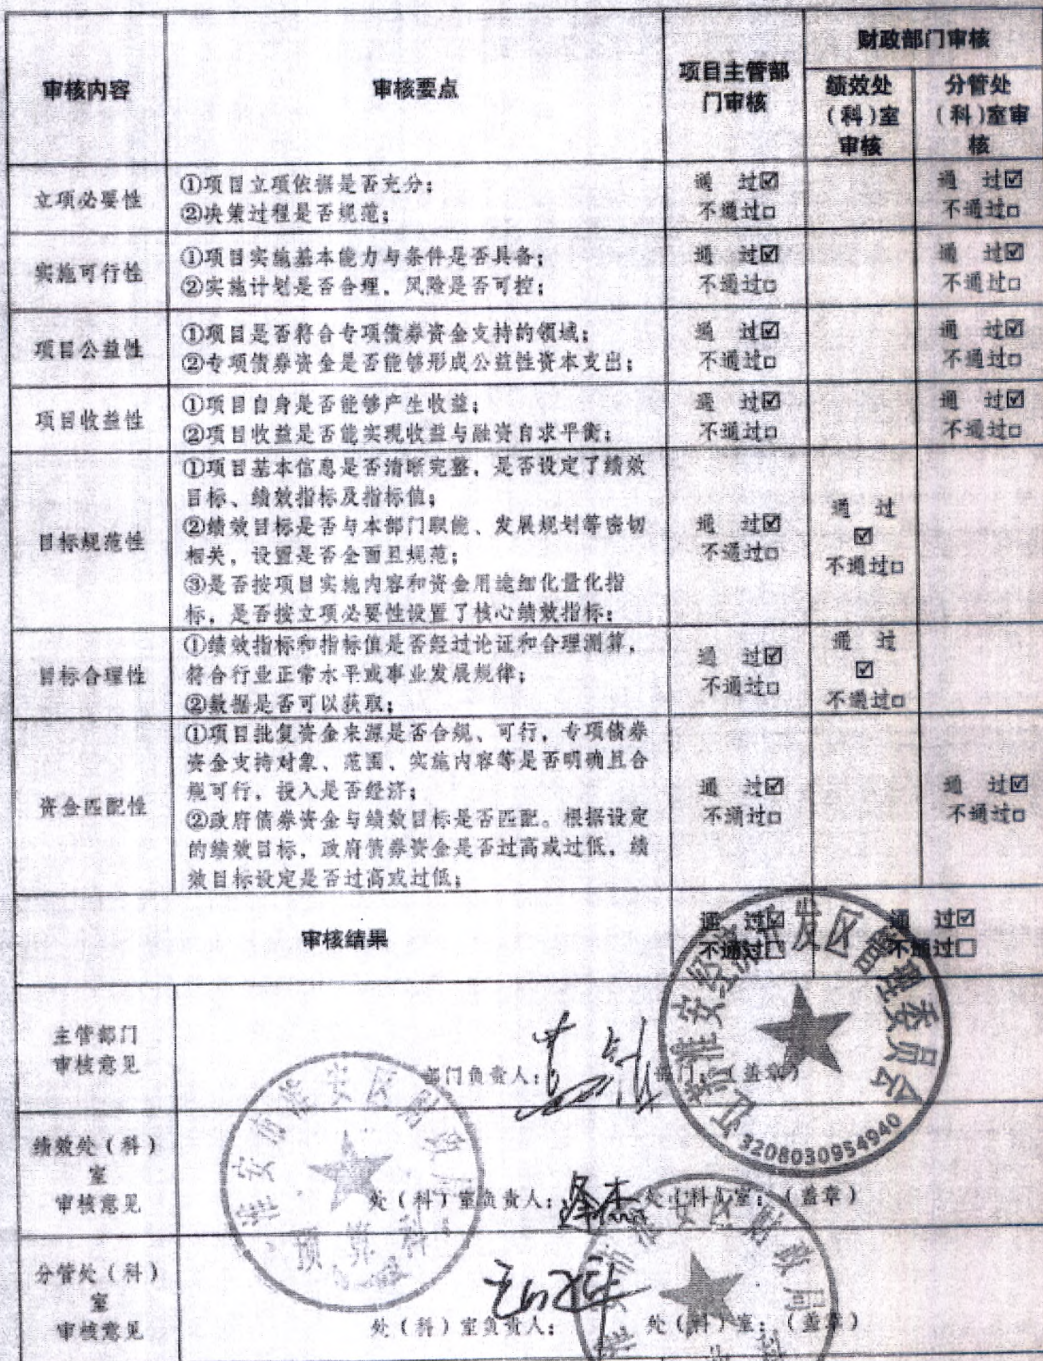 审核内容
审核要点
项目主管部
门审核
财政部门审核
绩效处
（科）室
审核
分管处
（科）室审
核
立项必要性
①项目立项依据是否充分；
②决策过程是否规范；
通 过☑
不通过□
通 过☑
不通过□
实施可行性
①项目实施基本能力与条件是否具备；
②实施计划是否合理，风险是否可控；
通 过☑
不通过□
通 过☑
不通过□
项目公益性
①项目是否符合专项债券资金支持的领域；
②专项债券资金是否能够形成公益性资本支出；
通 过☑
不通过□
通 过☑
不通过□
项目收益性
①项目自身是否能够产生收益；
②项目收益是否能实现收益与融资自求平衡；
通 过☑
不通过□
通 过☑
不通过□
目标规范性
①项目基本信息是否清晰完整，是否设定了绩效
目标、绩效指标及指标值；
②绩效目标是否与本部门职能、发展规划等密切
相关，设置是否全面且规范；
③是否按项目实施内容和资金用途细化量化指
标，是否按立项必要性设置了核心绩效指标；
通 过☑
不通过□
通 过
☑
不通过□
目标合理性
①绩效指标和指标值是否经过论证和合理测算，
符合行业正常水平或事业发展规律；
②数据是否可以获取；
通 过☑
不通过□
通 过
☑
不通过□
资金匹配性
①项目批复资金来源是否合规、可行，专项债券
资金支持对象、范围、实施内容等是否明确且合
规可行，投入是否经济；
②政府债券资金与绩效目标是否匹配。根据设定
的绩效目标，政府债券资金是否过高或过低，绩
效目标设定是否过高或过低；
通 过☑
不通过□
通 过☑
不通过□
审核结果
通 过☑
不通过□
通 过☑
不通过□
主管部门
审核意见
部门负责人：
部门：（盖章）
江苏淮安经济开发区管理委员会
3208030954940
绩效处（科）
室
审核意见
处（科）室负责人：
处（科）室：（盖章）
淮安市淮安区财政局
预算科
分管处（科）
室
审核意见
处（科）室负责人：
处（科）室：（盖章）
淮安市淮安区财政局